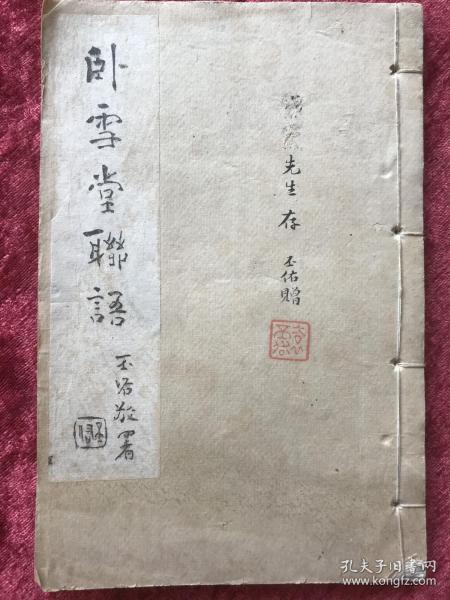 卧雪堂聯語
玉佑敬署
先生存
玉佑贈
孔夫子旧书网
www.kongfz.com